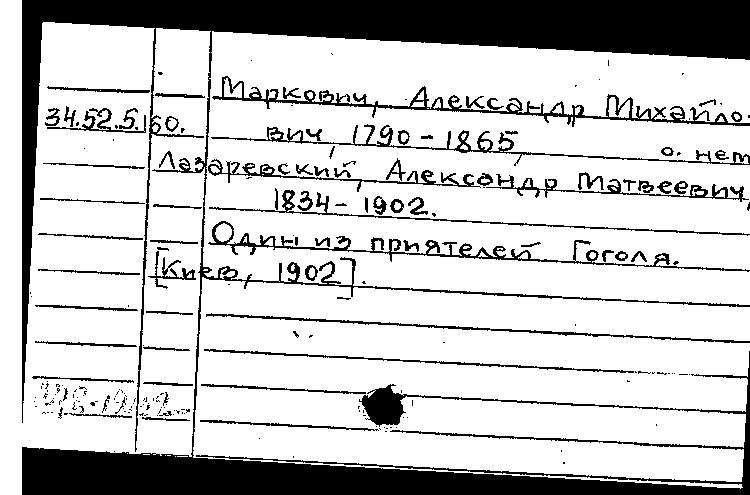 Маркович, Александр Михайло-
34.52.5.150. вич, 1790 - 1865, о. нет
Лазаревский, Александр Матвеевич,
1834 - 1902.
Один из приятелей Гоголя.
[Киев, 1902].